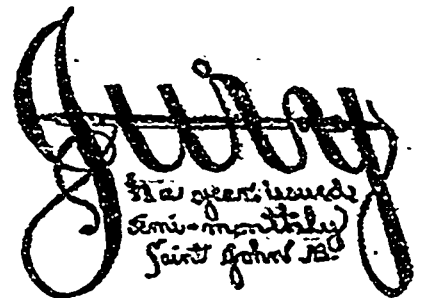 Jury
$1 a year: issued
semi-monthly
Saint John N.B.